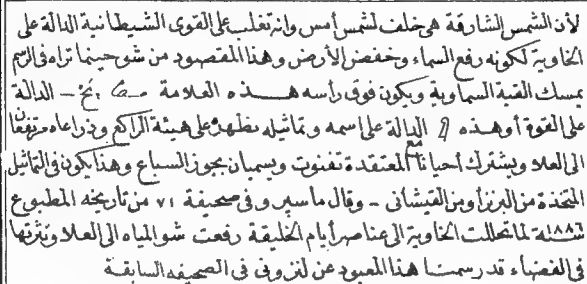 لأن الشمس الشارقة هى خلف لشمس أمس وانه تغلب على القوى الشيطانية الدالة على
الخاوية لكونه رفع السماء وخفض الأرض وهذا المقصود من شو حينما تراه فى الرسم
يمسك القبة السماوية ويكون فوق رأسه هذه العلامة نخ - الدالة
على القوة أو هذه الدالة على اسمه وتماثيله تظهره على هيئة الراكع وذراعاه مرتفعان
الى العلا ويشترك أحيانا مع المعتقدة تفنوت ويسميان بجوز السباع وهذا يكون فى التماثيل
المتخذة من البرنز أو من القيشانى - وقال ماسپرو فى صحيفة ٧١ من تاريخه المطبوع
سنة ١٨٨٦ لما تحللت الخاوية الى عناصر أيام الخليقة رفعت شو المياه الى العلا ونثرتها
فى الفضاء قد رسمنا هذا المعبود عن لنزونى فى الصحيفه السابقة